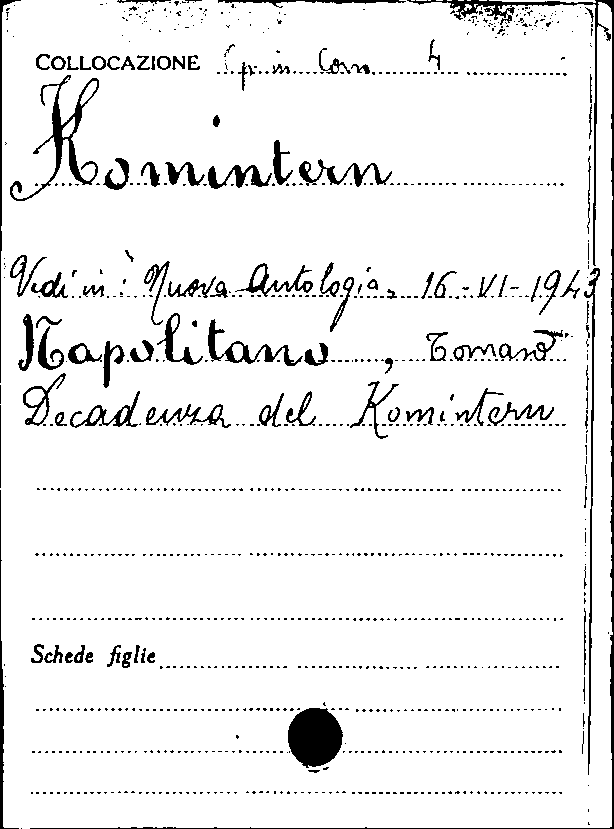 COLLOCAZIONE Sp. in Com 4
Komintern
Vedi in: Nuova Antologia, 16-VI-1943
Napolitano, Tomaso
Decadenza del Komintern
Schede figlie